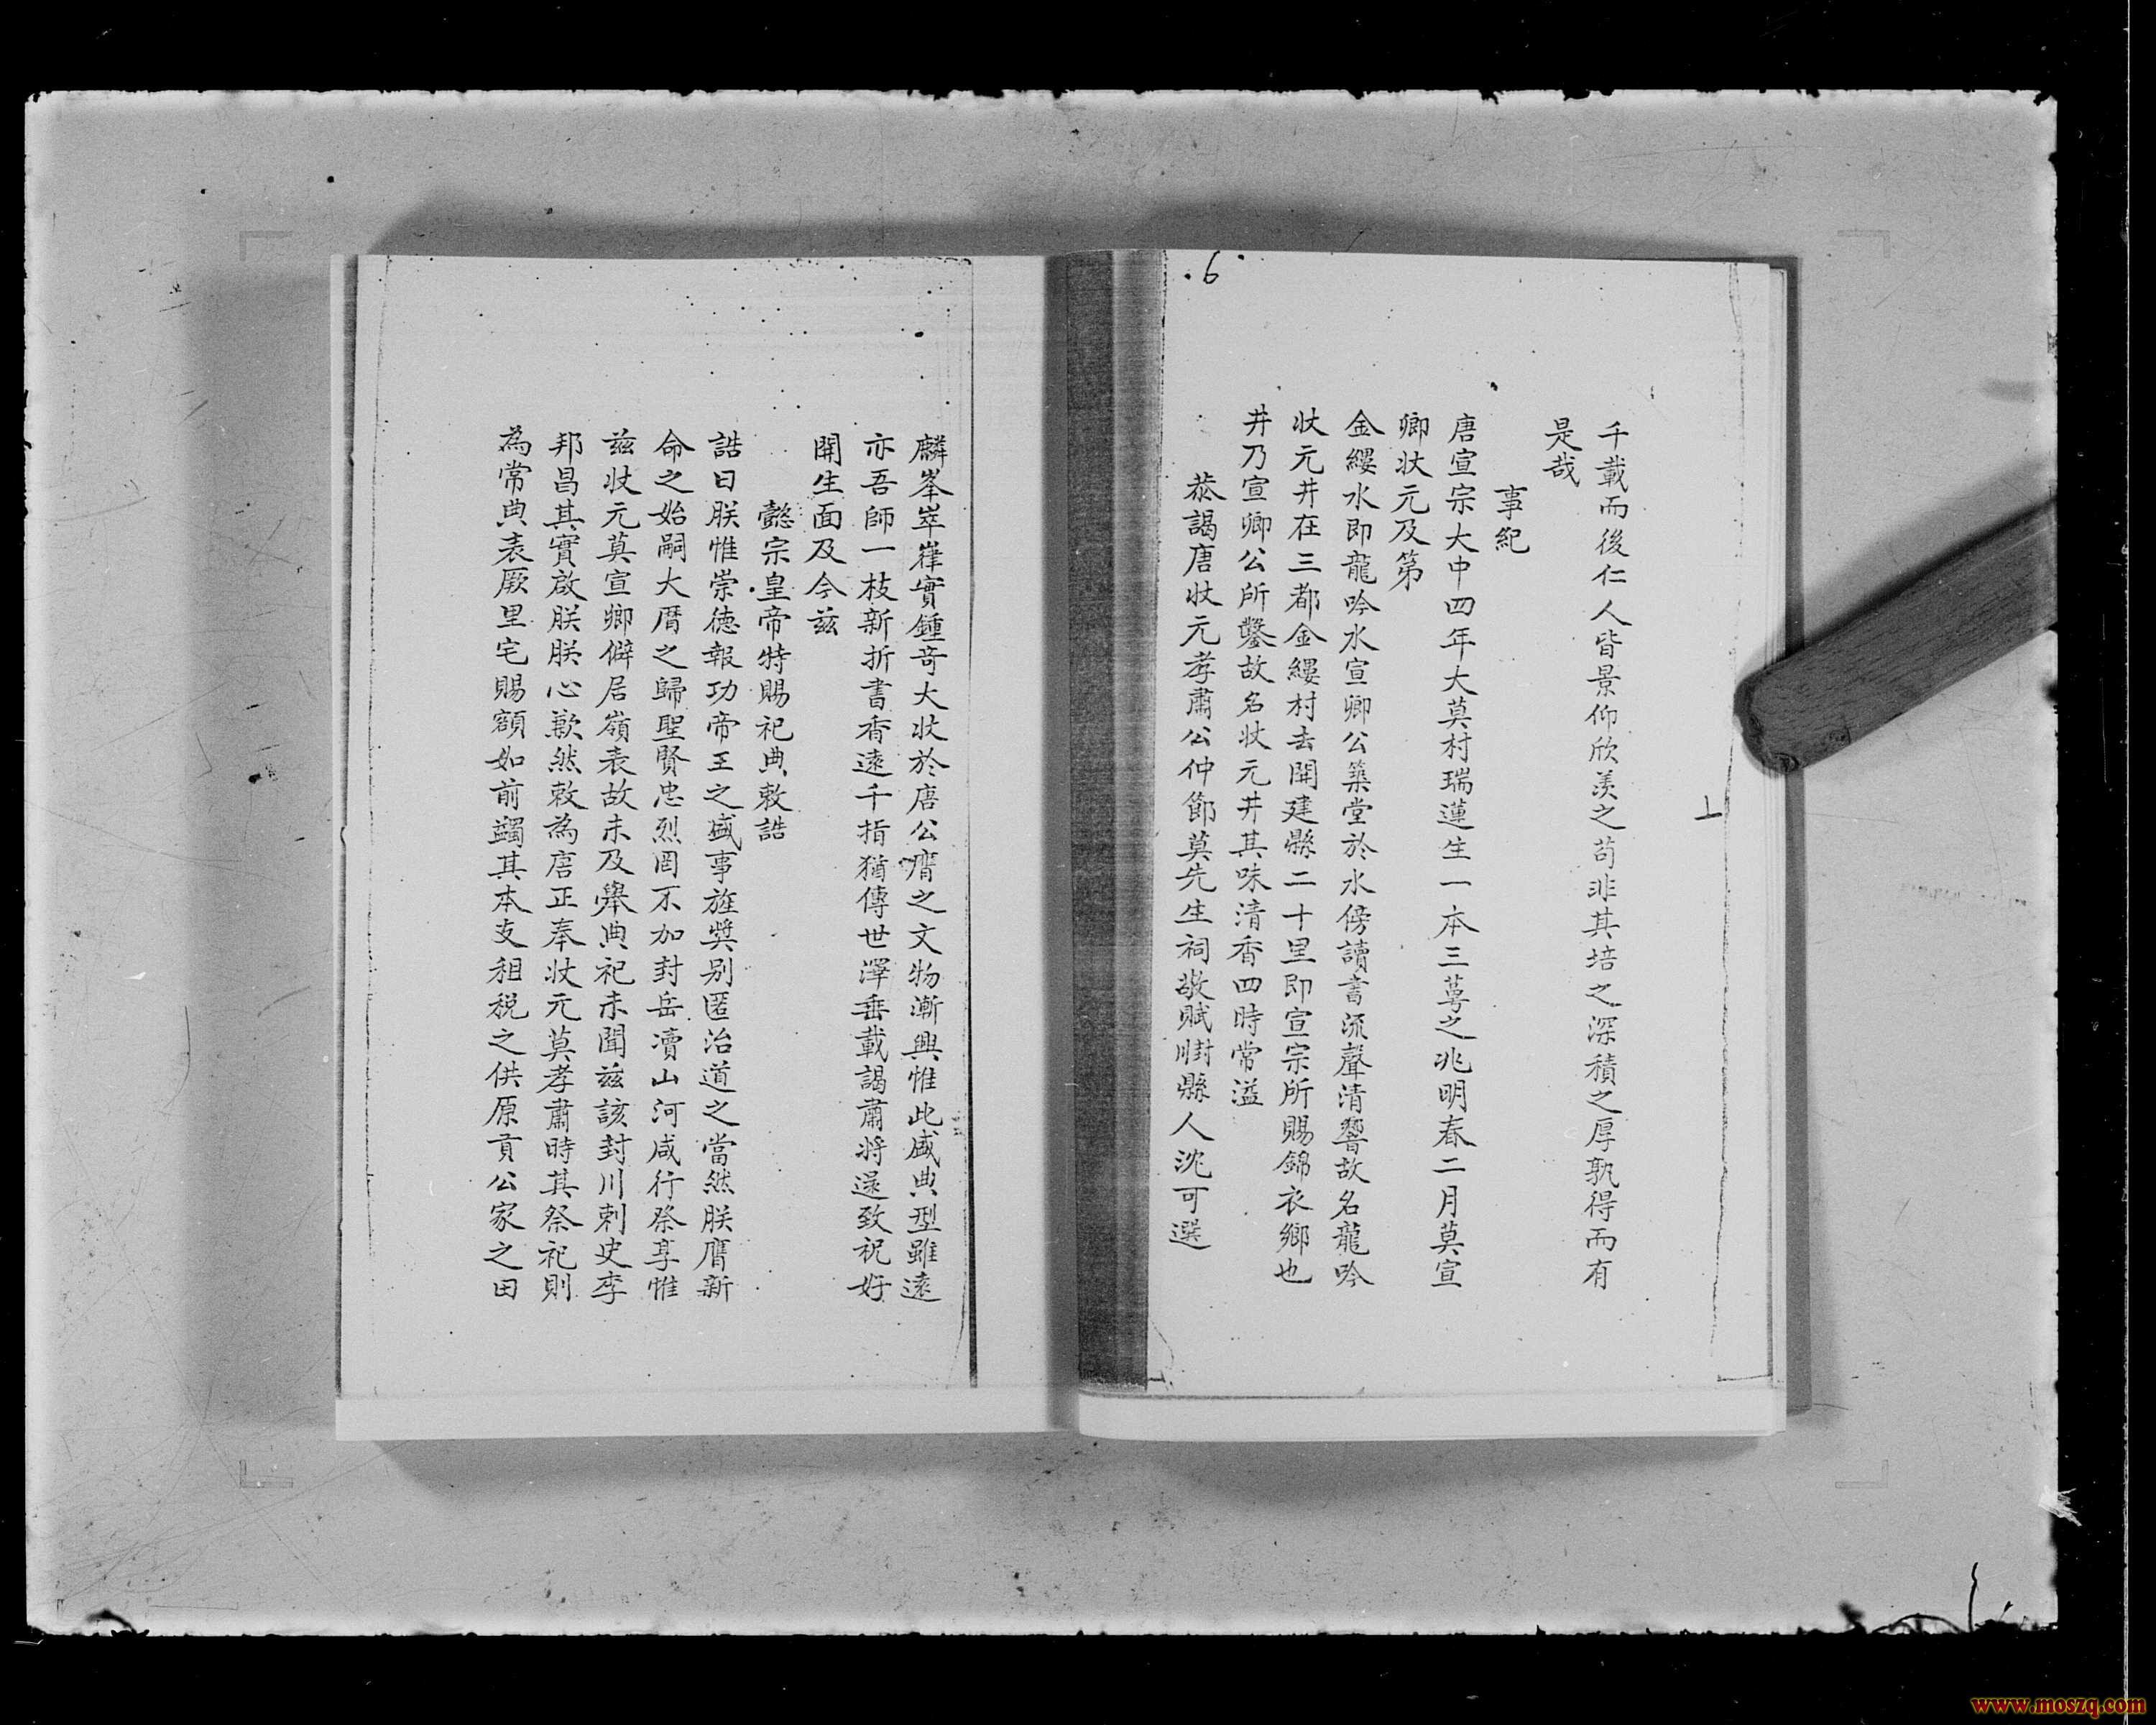 6
千載而後仁人皆景仰欣羨之苟非其培之深積之厚孰得而有
是哉
事紀
唐宣宗大中四年大莫村瑞蓮生一本三萼之兆明春二月莫宣
卿状元及第
金縷水即龍吟水宣卿公築堂於水傍讀書流聲清響故名龍吟
状元井在三都金縷村去開建縣二十里即宣宗所賜錦衣鄉也
井乃宣卿公所鑿故名状元井其味清香四時常溢
恭謁唐状元孝肅公仲節莫先生祠敬賦 縣人沈可選
麟峯崒嵂實鍾奇大状於唐公膺之文物漸興惟此盛典型雖遠
亦吾師一枝新折書香遠千指猶傳世澤垂載謁肅將還致祝好
開生面及今茲
懿宗皇帝特賜祀典敕誥
誥曰朕惟崇德報功帝王之盛事旌獎别匿治道之當然朕膺新
命之始嗣大曆之歸聖賢忠烈罔不加封岳瀆山河咸行祭享惟
茲状元莫宣卿僻居嶺表故未及舉典祀未聞茲該封川刺史李
邦昌其實啟朕朕心歉然敕為唐正奉状元莫孝肅時其祭祀則
為常典表厥里宅賜額如前蠲其本支租税之供原貢公家之田
www.moszq.com